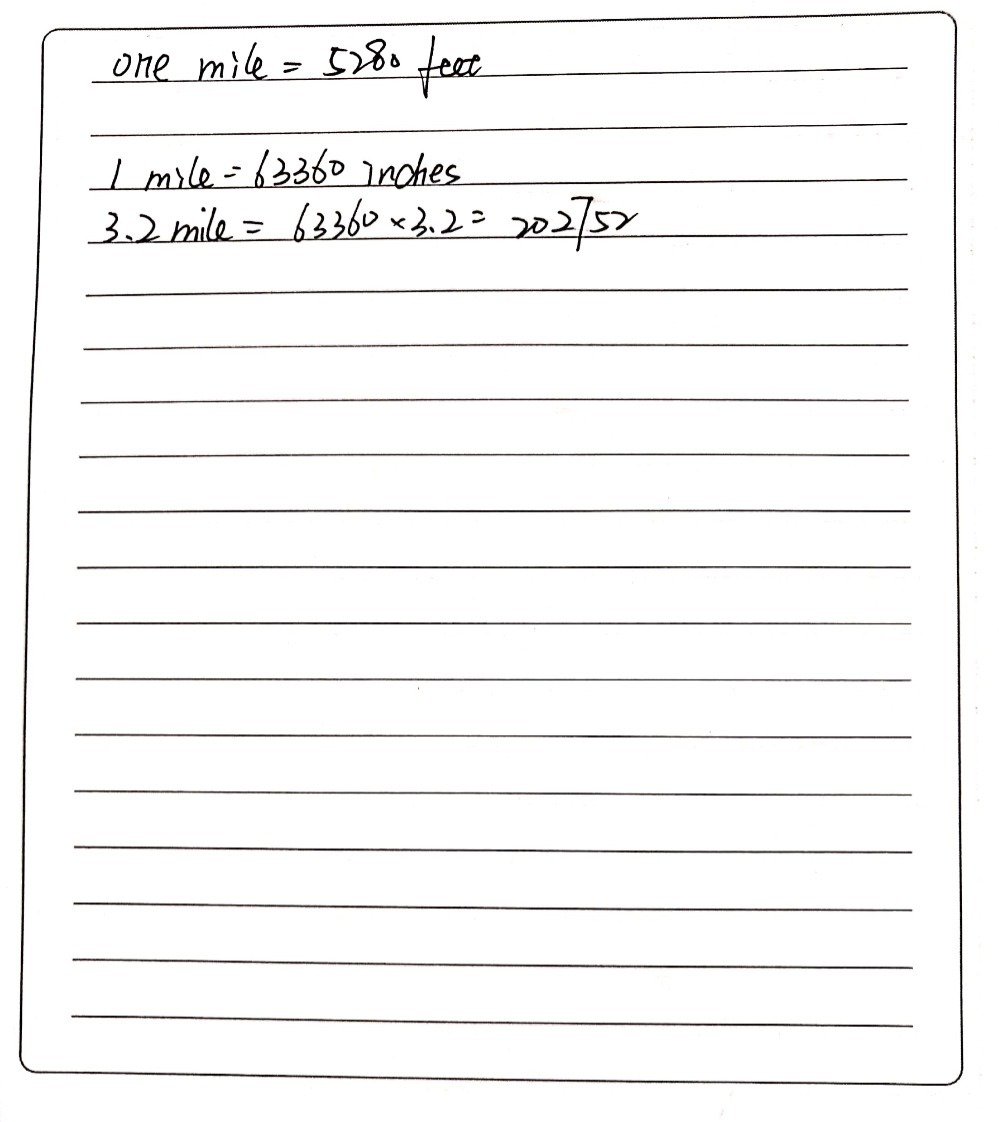 one mile = 5280 feet
1 mile = 63360 inches
3.2 mile = 63360 × 3.2 = 202752